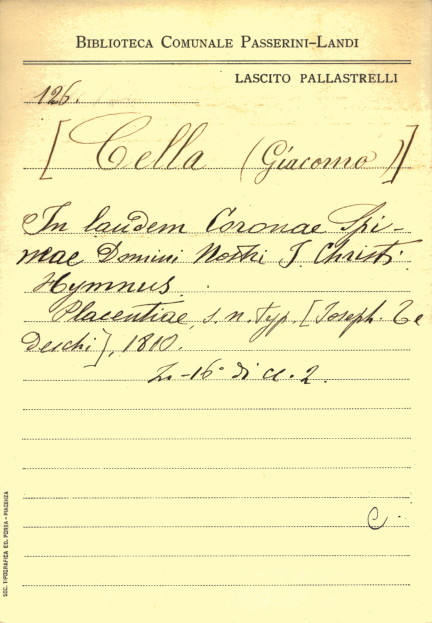 BIBLIOTECA COMUNALE PASSERINI-LANDI
LASCITO PALLASTRELLI
126.
[Cella (Giacomo)]
In laudem Coronae Spi-
neae Domini Nostri J. Christi
Hymnus
Placentiae, s. n. typ. [Joseph. Te
deschi], 1810.
In-16° di cc. 2.
C.
SOC. TIPOGRAFICA ED. PORTA - PIACENZA